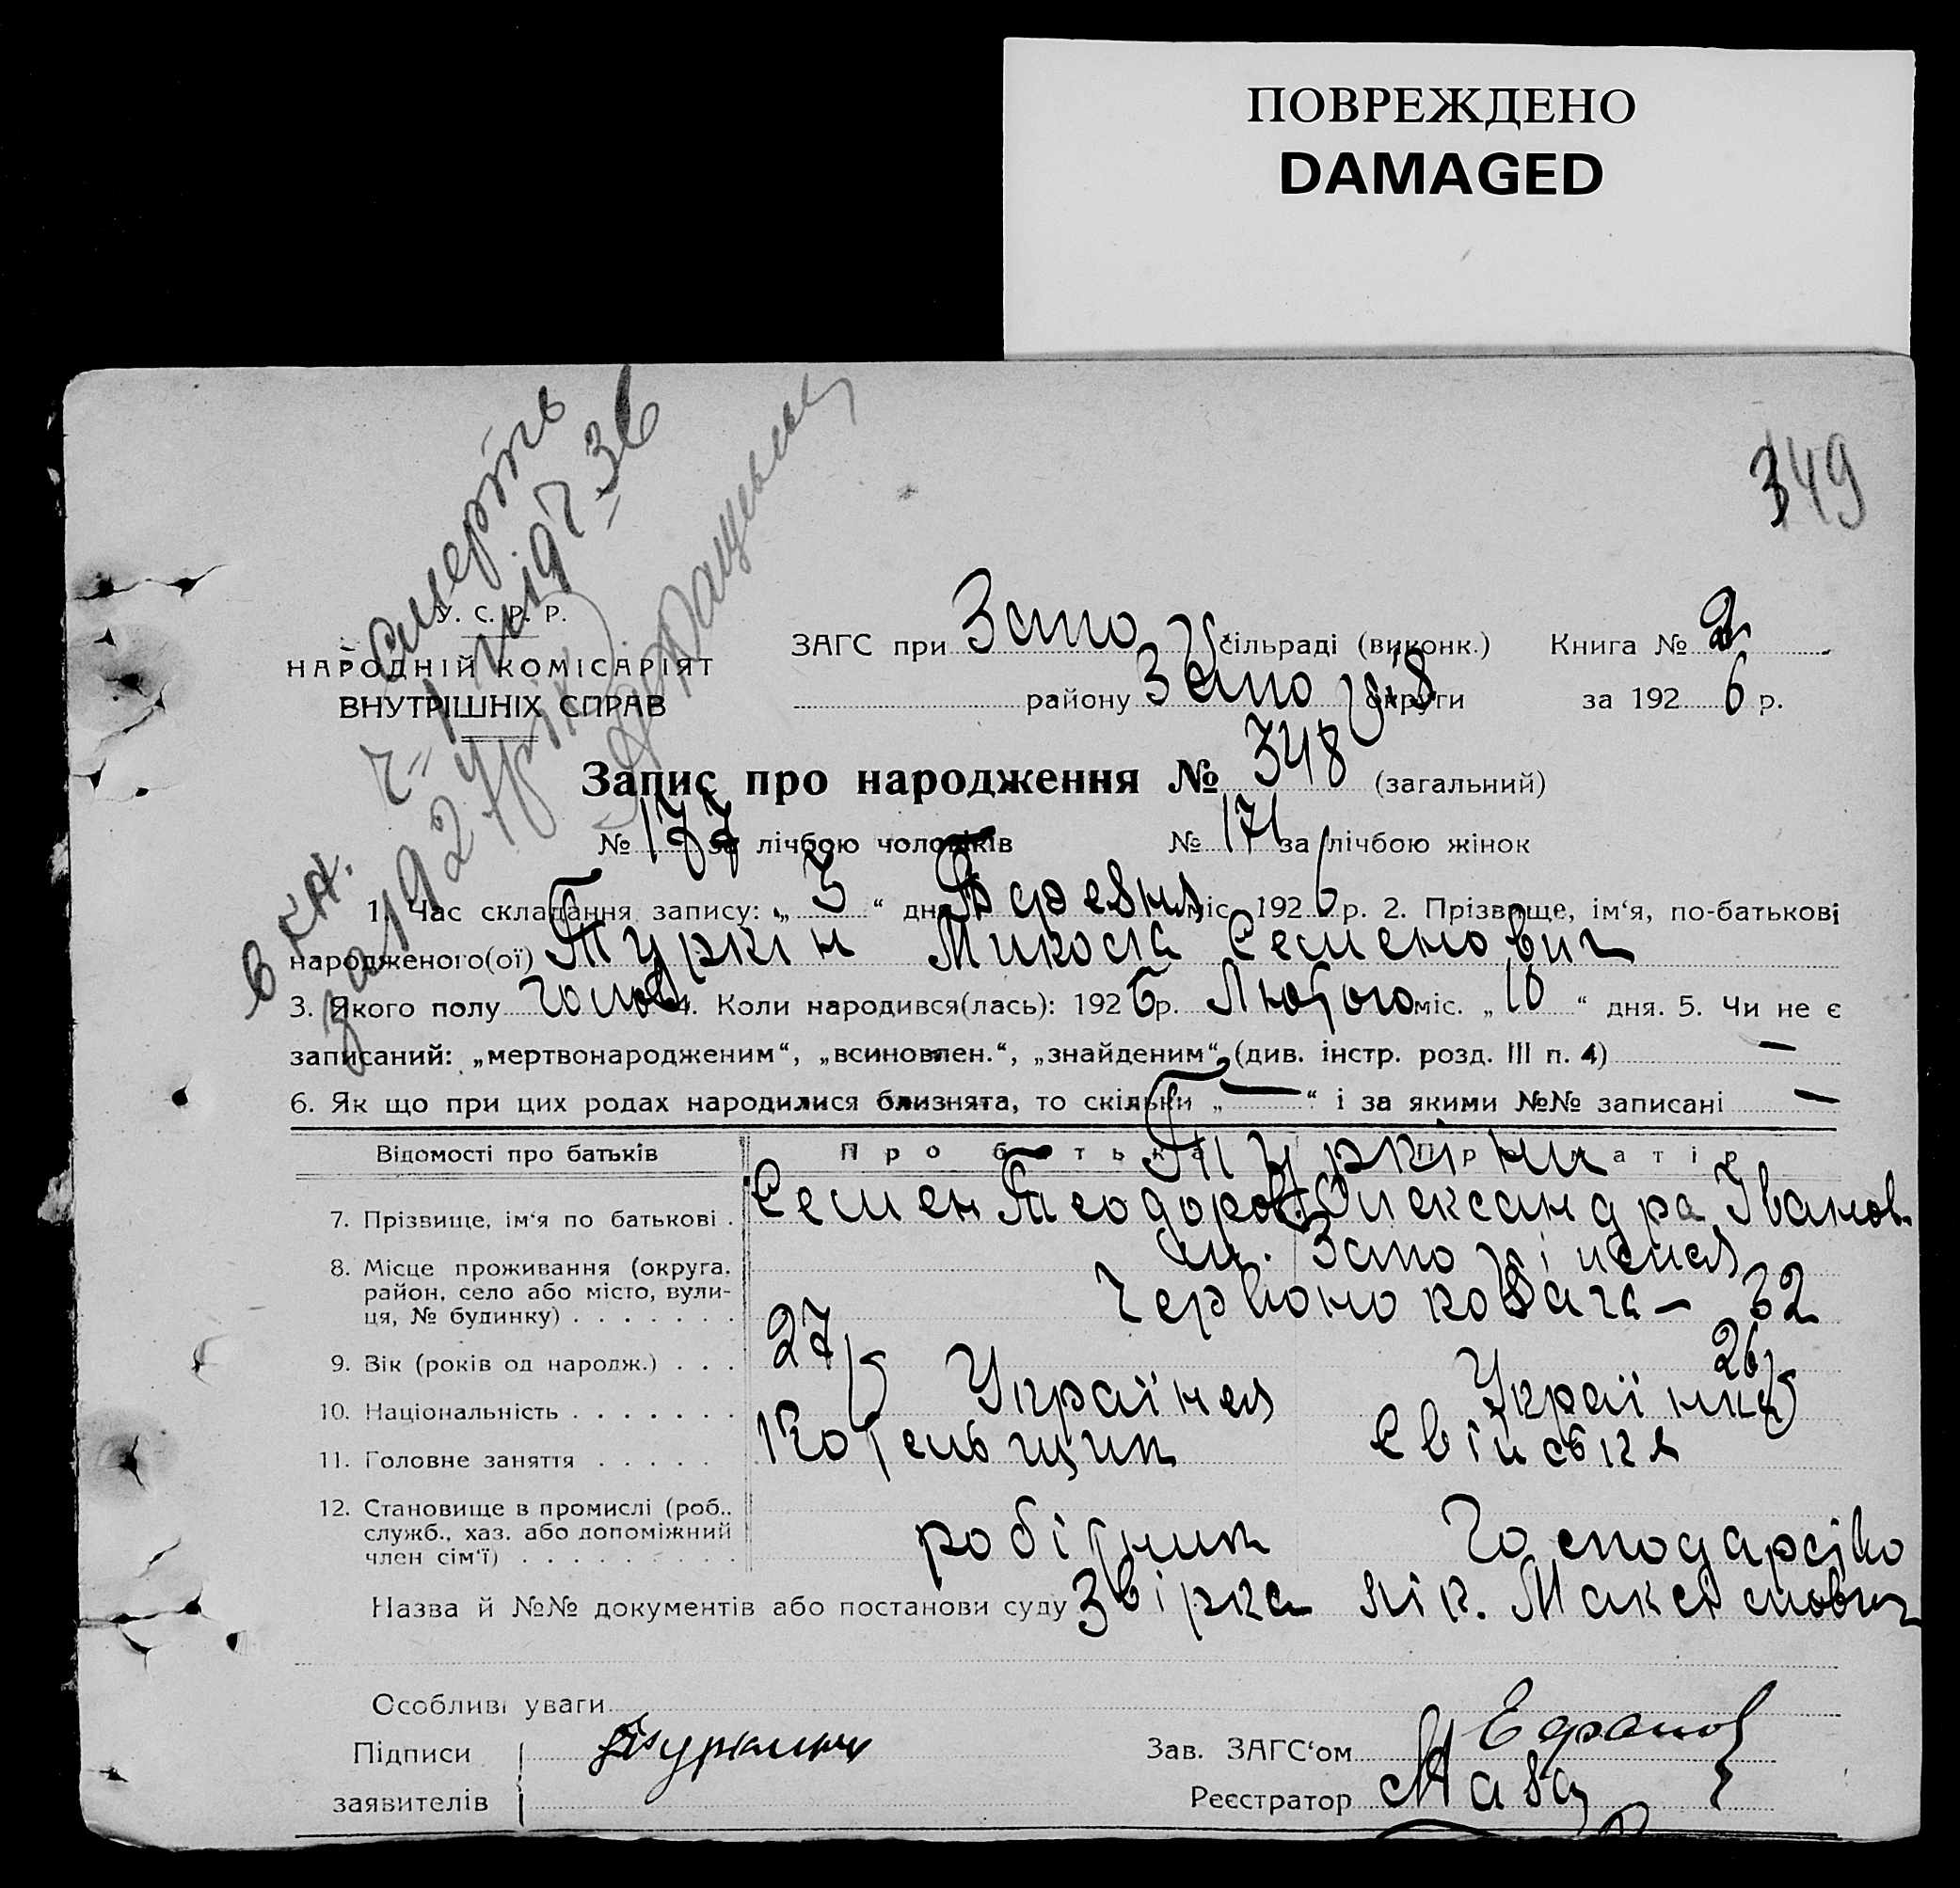 ПОВРЕЖДЕНО
DAMAGED
349
Смерть
У. С. Р. Р.
НАРОДНІЙ КОМІСАРІЯТ
ВНУТРІШНІХ СПРАВ
ЗАГС при Запо сільраді (виконк.) Книга № 2
району Запо округи за 1926 р.
Запис про народження № 348 (загальний)
№ 177 за лічбою чоловіків № 171 за лічбою жінок
1. Час складання запису: „ 3 “ дня Березня міс. 1926 р. 2. Прізвище, ім‘я, по-батькові
народженого(ої) Туркін Микола Семенович
3. Якого полу чолов 4. Коли народився(лась): 1926 р. Лютого міс. „ 10 “ дня. 5. Чи не є
записаний: „мертвонародженим“, „всиновлен.“, „знайденим“, (див. інстр. розд. III п. 4) —
6. Як що при цих родах народилися близнята, то скільки „ — “ і за якими №№ записані —
Відомості про батьків Про батька Про матір
Туркіни
7. Прізвище, ім‘я по батькові . Семен Теодоров. Олександра Іванов.
8. Місце проживання (округа, район, село або місто, вулиця, № будинку) . . . . . . . м. Запоріжжя
Червоно козача — 32
9. Вік (років од народж.) . . . 27 р 26 р
10. Національність . . . . . . . Українец Українка
11. Головне заняття . . . . . Котельщик Свійська
12. Становище в промислі (роб.,
служб., хаз. або допоміжний
член сім‘ї) . . . . . . . . . робітник Господарство
Назва й №№ документів або постанови суду Звірка лік. Максимович
Особливі уваги
Підписи Туркин Зав. ЗАГС‘ом
заявителів Реєстратор